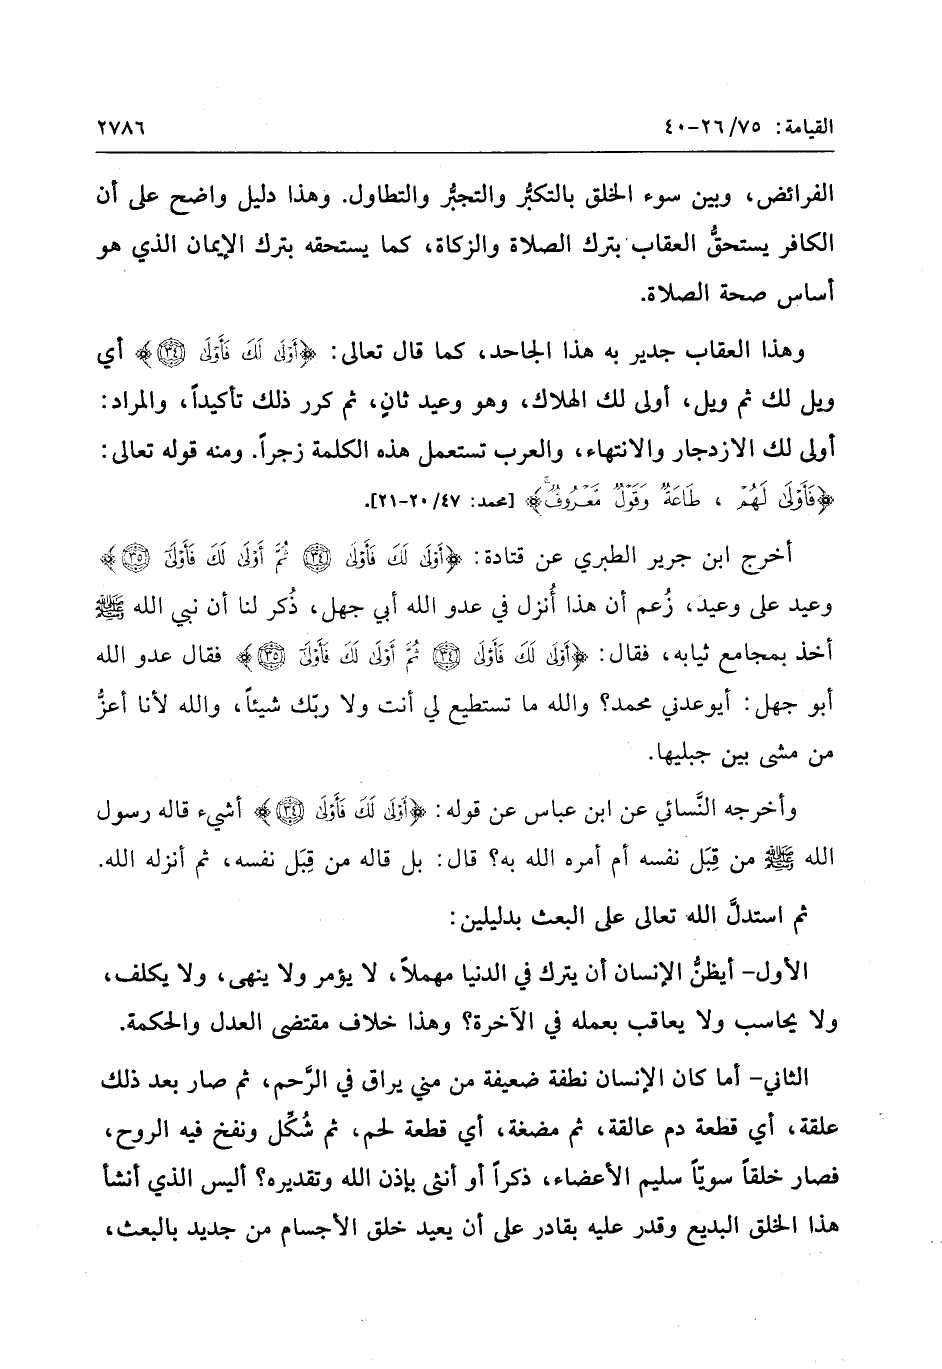 القيامة: ٢٦/٧٥-٤٠ ٢٧٨٦
الفرائض، وبين سوء الخلق بالتكبُّر والتجبُّر والتطاول. وهذا دليل واضح على أن
الكافر يستحقُّ العقاب بترك الصلاة والزكاة، كما يستحقه بترك الإيمان الذي هو
أساس صحة الصلاة.
وهذا العقاب جدير به هذا الجاحد، كما قال تعالى: ﴿أَوْلَى لَكَ فَأَوْلَى ٣٤﴾ أي
ويل لك ثم ويل، أولى لك الهلاك، وهو وعيد ثانٍ، ثم كرر ذلك تأكيداً، والمراد:
أولى لك الازدجار والانتهاء، والعرب تستعمل هذه الكلمة زجراً. ومنه قوله تعالى:
﴿فَأَوْلَى لَهُمْ ، طَاعَةٌ وَقَوْلٌ مَّعْرُوفٌ﴾ [محمد: ٢٠/٤٧-٢١].
أخرج ابن جرير الطبري عن قتادة: ﴿أَوْلَى لَكَ فَأَوْلَى ٣٤ ثُمَّ أَوْلَى لَكَ فَأَوْلَى ٣٥﴾
وعيد على وعيد، زُعم أن هذا أُنزل في عدو الله أبي جهل، ذُكر لنا أن نبي الله ﷺ
أخذ بمجامع ثيابه، فقال: ﴿أَوْلَى لَكَ فَأَوْلَى ٣٤ ثُمَّ أَوْلَى لَكَ فَأَوْلَى ٣٥﴾ فقال عدو الله
أبو جهل: أيوعدني محمد؟ والله ما تستطيع لي أنت ولا ربّك شيئاً، والله لأنا أعزُّ
من مشى بين جبليها.
وأخرجه النَّسائي عن ابن عباس عن قوله: ﴿أَوْلَى لَكَ فَأَوْلَى ٣٤﴾ أشيء قاله رسول
الله ﷺ من قِبَل نفسه أم أمره الله به؟ قال: بل قاله من قِبَل نفسه، ثم أنزله الله.
ثم استدلَّ الله تعالى على البعث بدليلين:
الأول- أيظنُّ الإنسان أن يترك في الدنيا مهملاً، لا يؤمر ولا ينهى، ولا يكلف،
ولا يحاسب ولا يعاقب بعمله في الآخرة؟ وهذا خلاف مقتضى العدل والحكمة.
الثاني- أما كان الإنسان نطفة ضعيفة من مني يراق في الرَّحم، ثم صار بعد ذلك
علقة، أي قطعة دم عالقة، ثم مضغة، أي قطعة لحم، ثم شُكِّل ونفخ فيه الروح،
فصار خلقاً سويّاً سليم الأعضاء، ذكراً أو أنثى بإذن الله وتقديره؟ أليس الذي أنشأ
هذا الخلق البديع وقدر عليه بقادر على أن يعيد خلق الأجسام من جديد بالبعث،